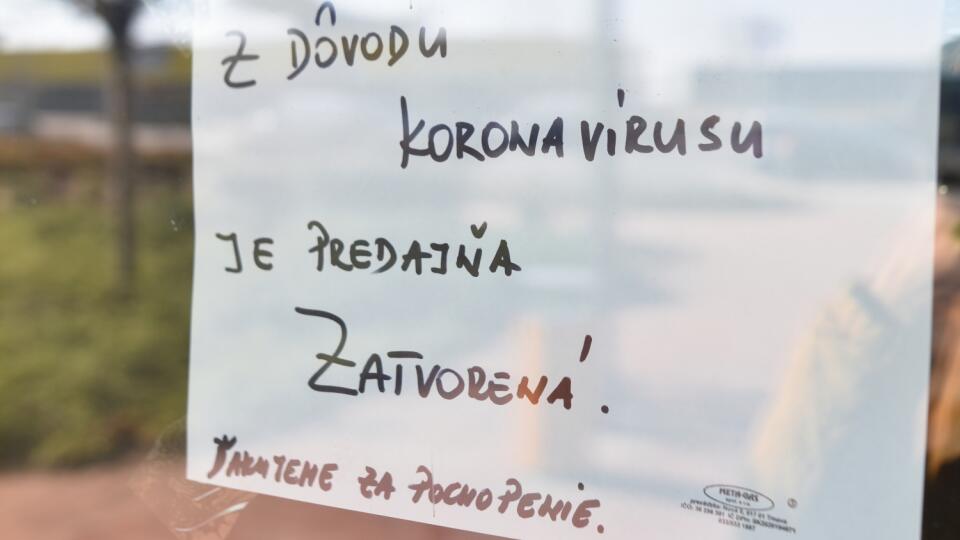 Z DÔVODU
KORONAVÍRUSU
JE PREDAJŇA
ZATVORENÁ.
ĎAKUJEME ZA POCHOPENIE.
META-GAS